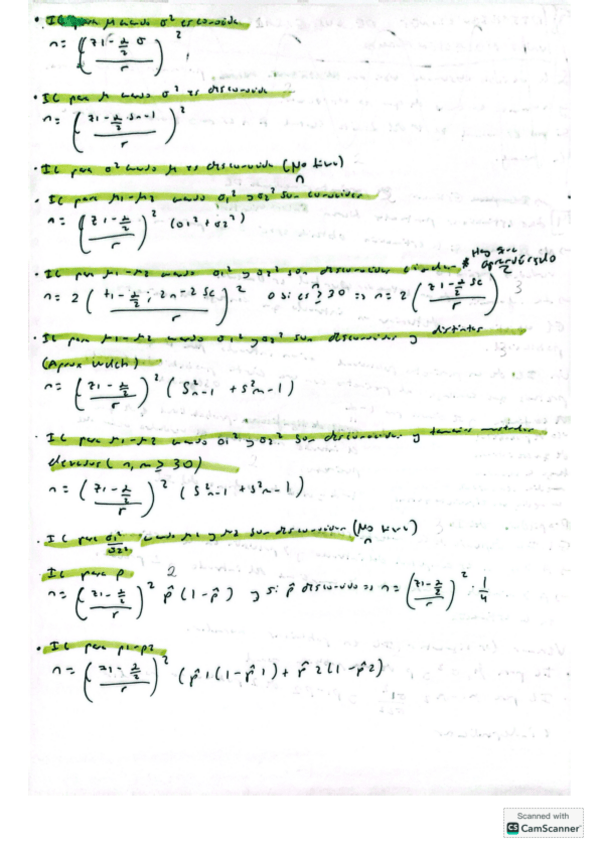 • IC para μ cuando σ² es conocida
n = (z1-α/2 σ / r)²
• IC para μ cuando σ² es desconocida
n = (z1-α/2 · sn-1 / r)²
• IC para σ² cuando μ es desconocida (No tiene)
n
• IC para μ1-μ2 cuando σ1² y σ2² son conocidas
n = (z1-α/2 / r)² (σ1² + σ2²)
• IC para μ1-μ2 cuando σ1² y σ2² son desconocidas * Hay que
n = 2 (t1-α/2; 2n-2 Sc / r)² o si es n ≥ 30 => n = 2 (z1-α/2 Sc / r)²
• IC para μ1-μ2 cuando σ1² y σ2² son desconocidas y distintas
(Aprox Welch)
n = (z1-α/2 / r)² (S²n-1 + S²m-1)
• IC para μ1-μ2 cuando σ1² y σ2² son desconocidas y tamaños muestrales
elevados (n, m ≥ 30)
n = (z1-α/2 / r)² (S²n-1 + S²m-1)
• IC para σ1²/σ2² cuando μ1 y μ2 son desconocidas (No tiene)
n
IC para p
n = (z1-α/2 / r)² p̂ (1-p̂) y si p̂ desconocido => n = (z1-α/2 / r)² · 1/4
• IC para p1-p2
n = (z1-α/2 / r)² (p̂1(1-p̂1) + p̂2(1-p̂2))
Scanned with
CS CamScanner